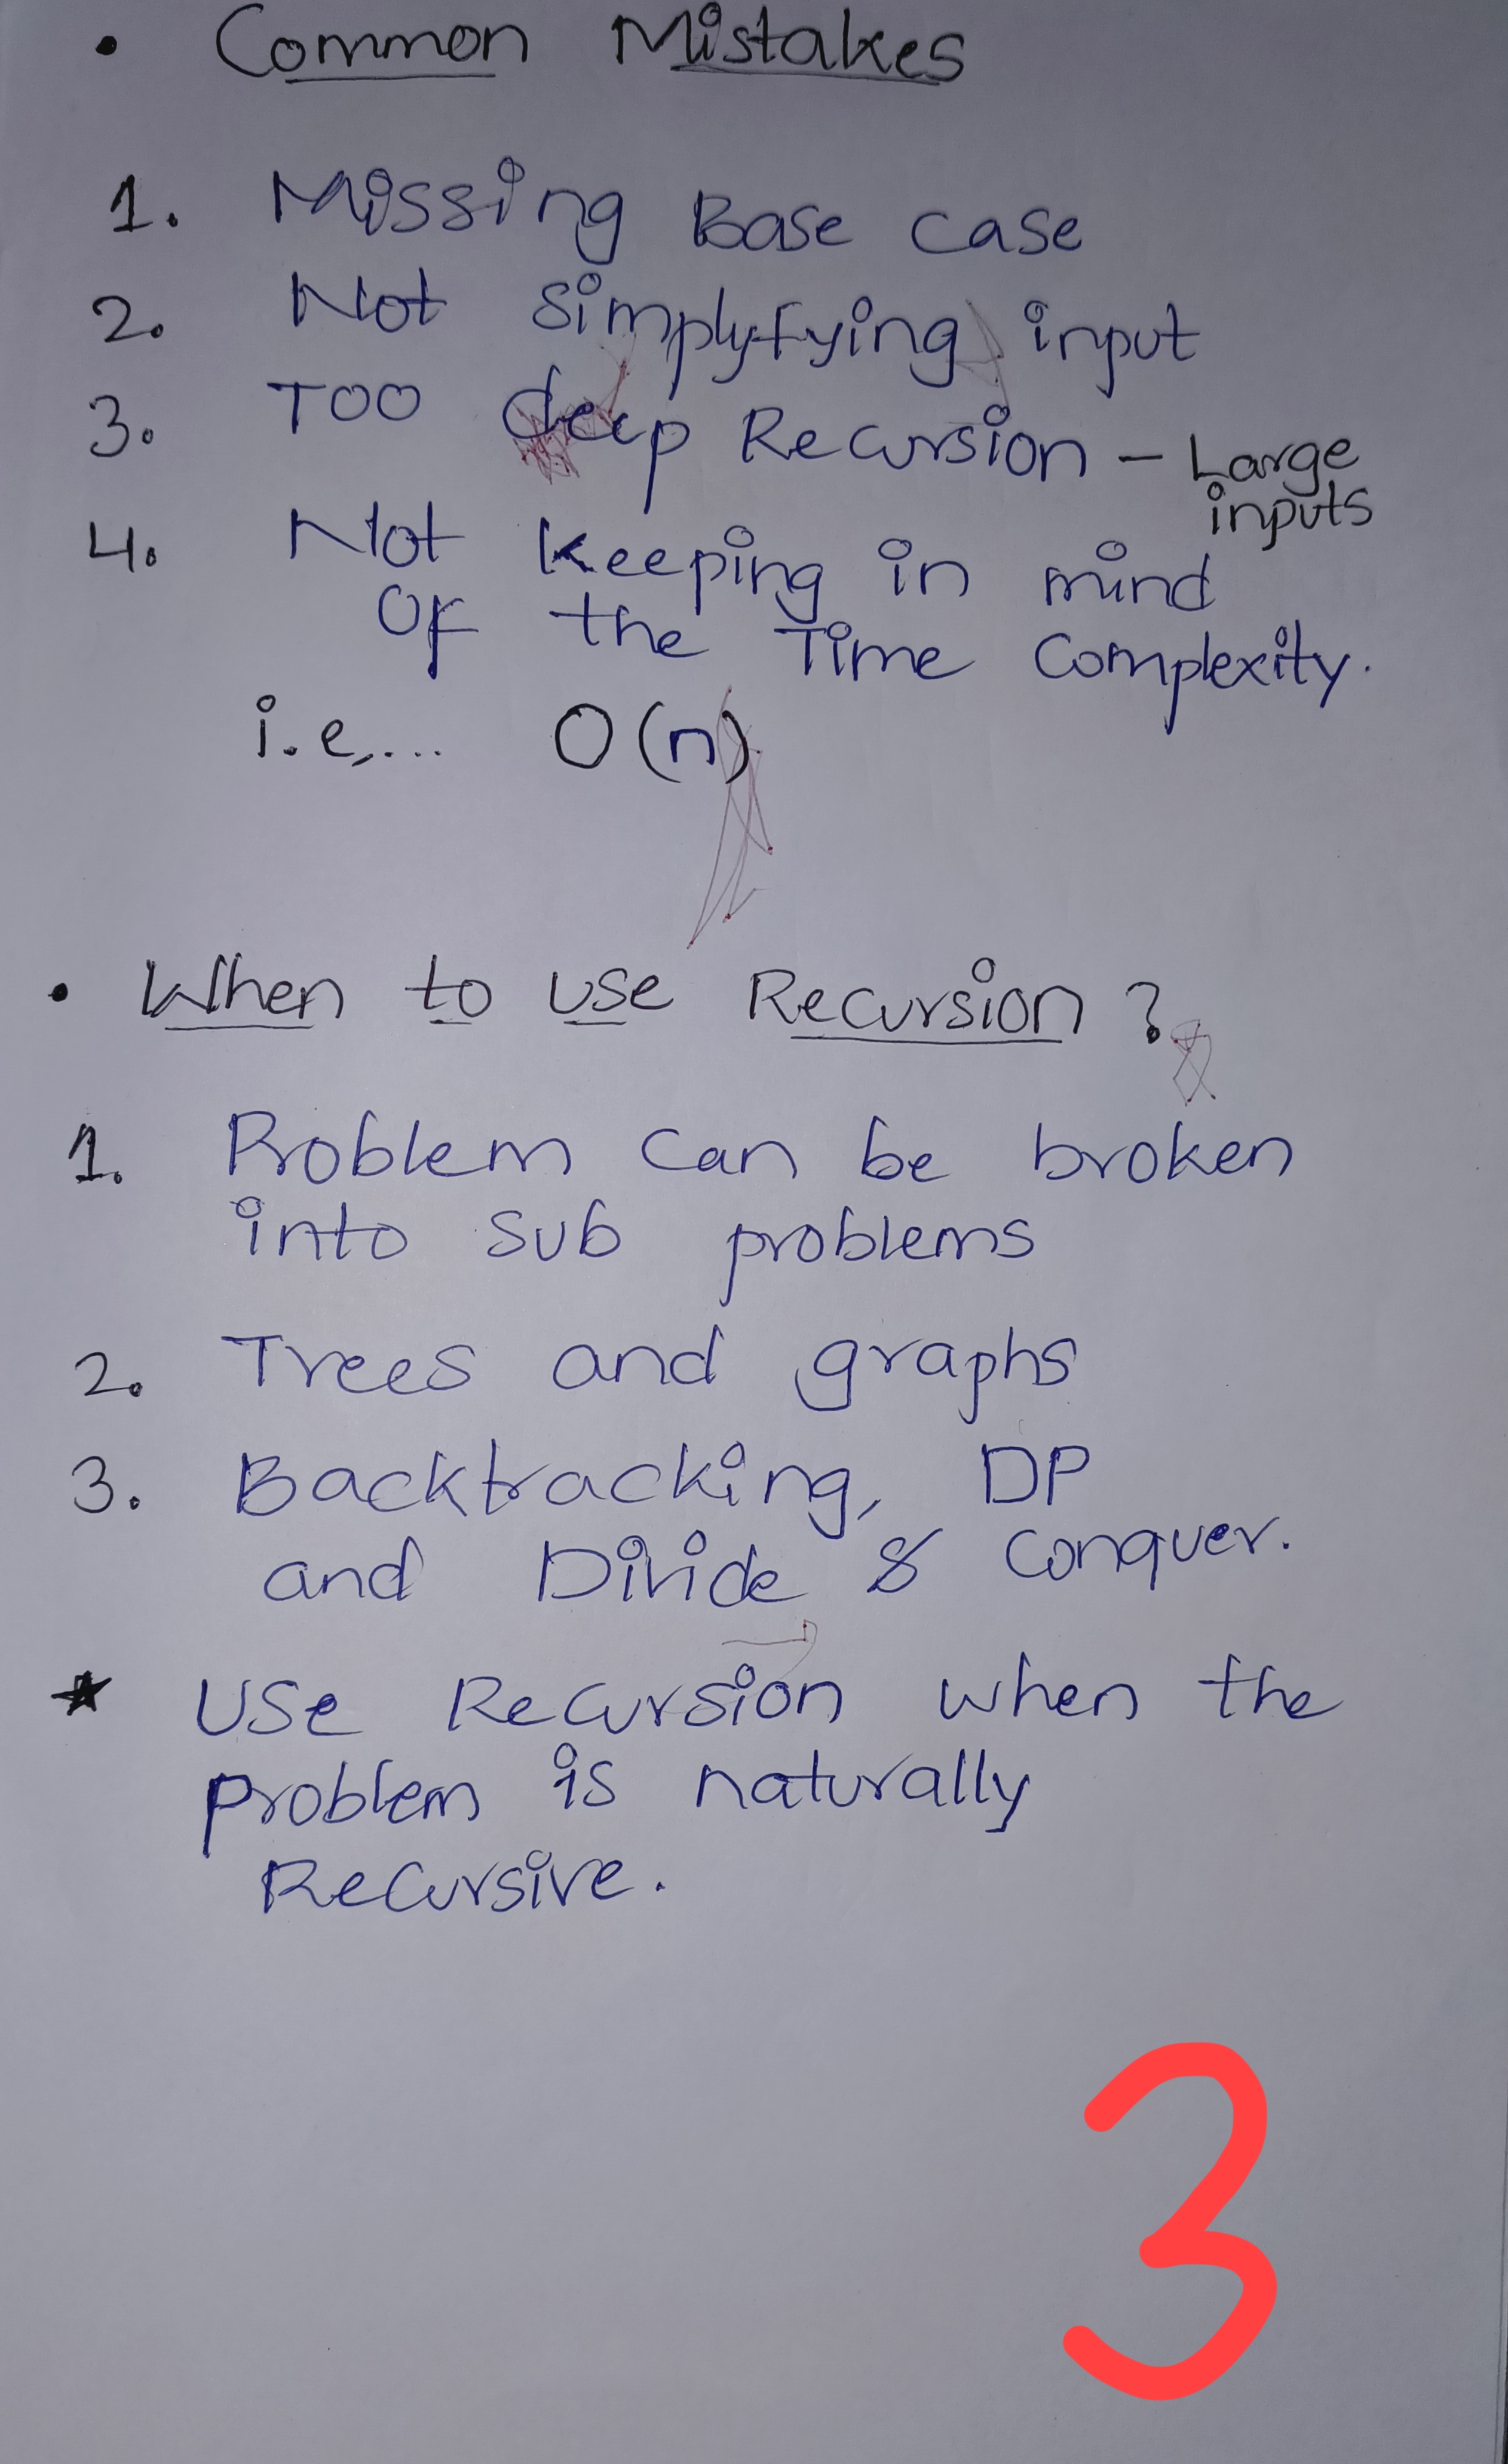 • Common Mistakes
1. Missing Base case
2. Not simplyfying input
3. Too deep Recursion - Large
inputs
4. Not keeping in mind
of the Time Complexity.
i.e,... O(n)
• When to use Recursion?
1. Problem can be broken
into sub problems
2. Trees and graphs
3. Backtracking, DP
and Divide & Conquer.
★ Use Recursion when the
problem is naturally
Recursive.
3